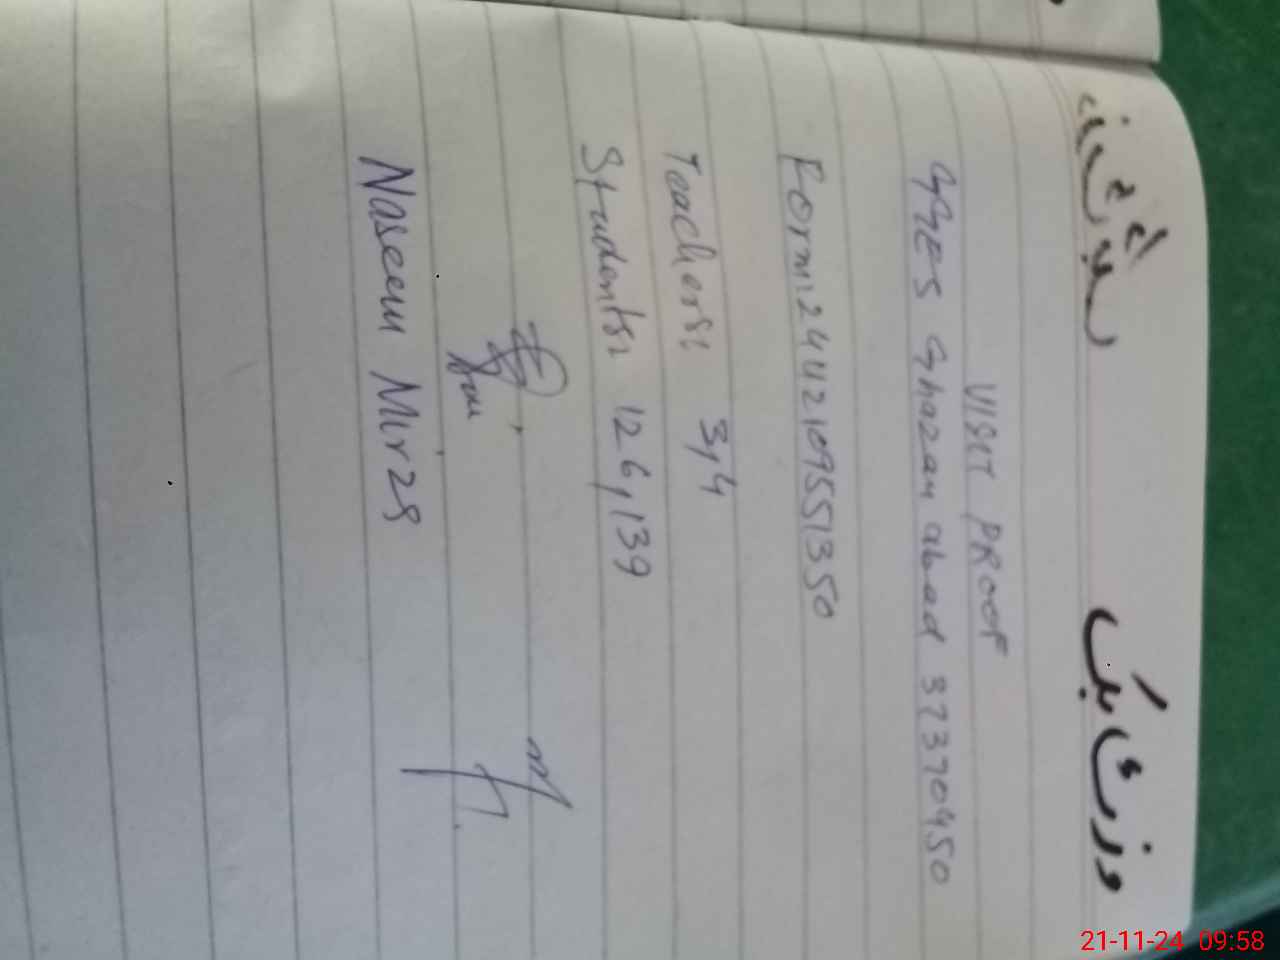 وزٹ بک
VISIT PROOF
GGES Ghazan abad 37370450
Form: 2442109551350
Teachers: 3,4
Students: 126,139
Naseem Mirza
21-11-24 09:58